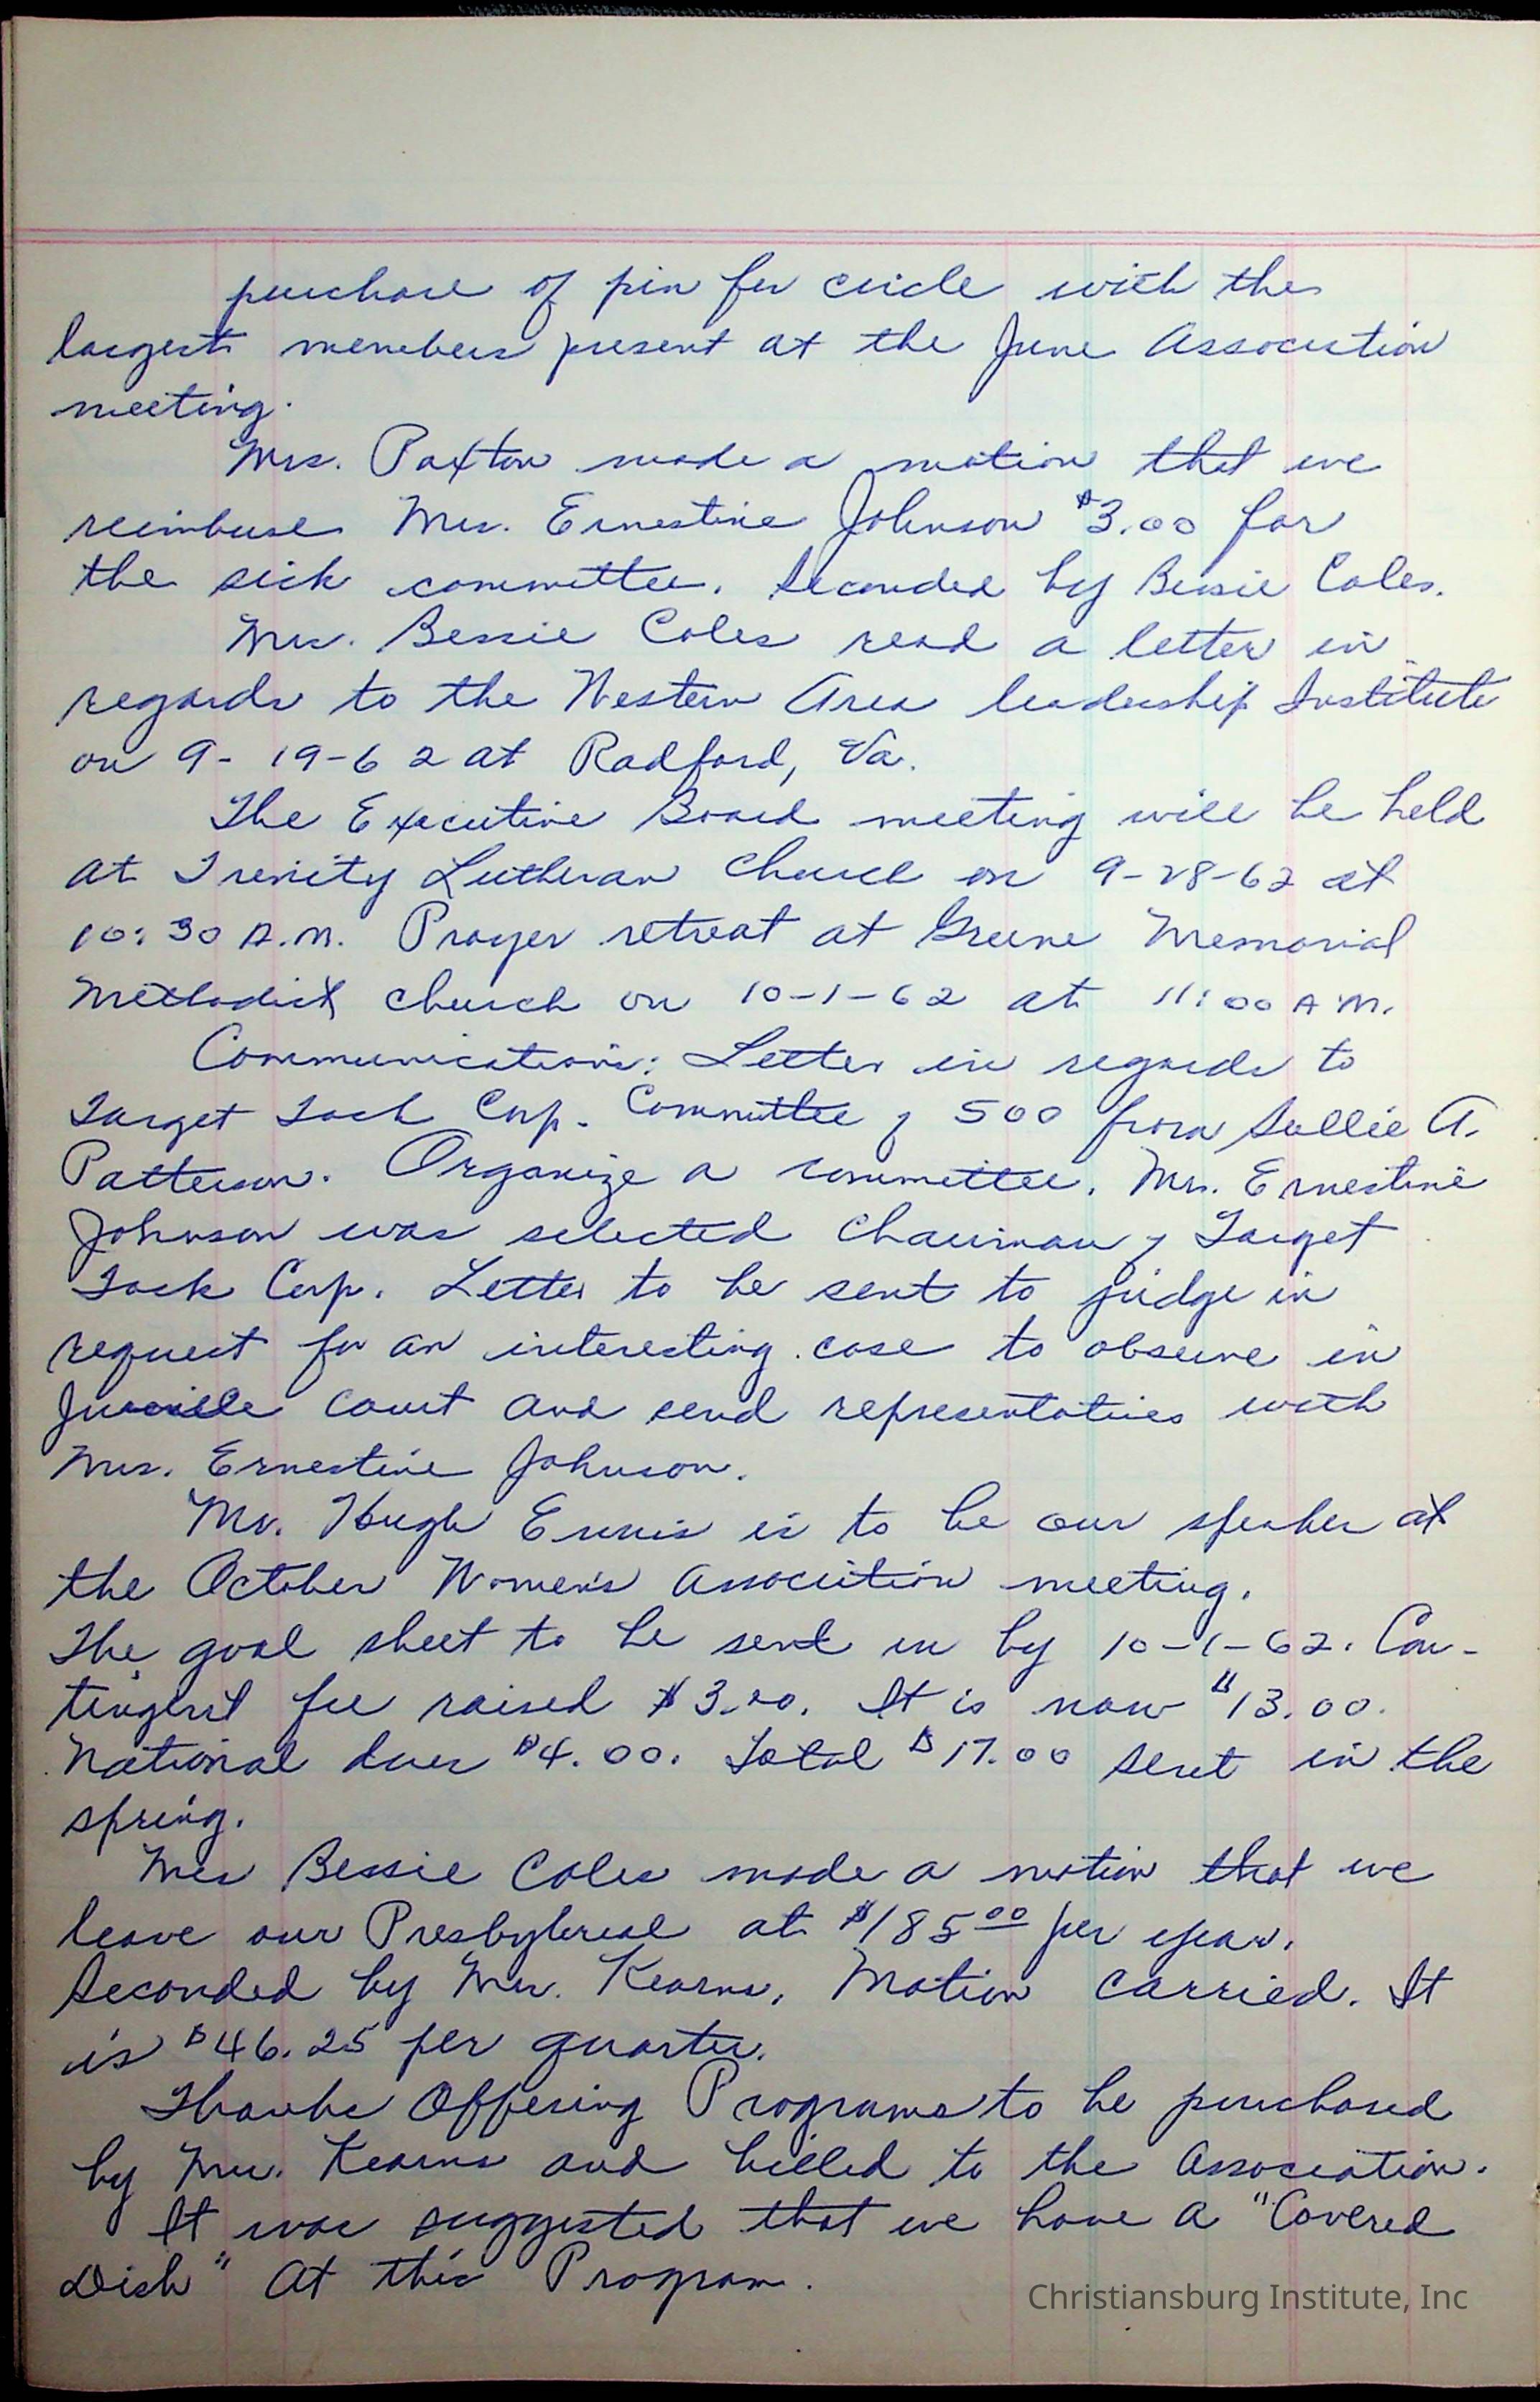 purchase of pin for circle with the
largest members present at the June Association
meeting.
Mrs. Paxton made a motion that we
reimbuse Mrs. Ernestine Johnson $3.00 for
the sick committee. Seconded by Bessie Coles.
Mrs. Bessie Coles read a letter in
regards to the Western Area leadership Institute
on 9-19-62 at Radford, Va.
The Executive Board meeting will be held
at Trinity Lutheran Church on 9-28-62 at
10:30 A.M. Prayer retreat at Greene Memorial
Methodist Church on 10-1-62 at 11:00 A.M.
Communications: Letter in regards to
Target Corp. Committee of 500 from Sallie A.
Patterson. Organize a committee. Mrs. Ernestine
Johnson was selected Chairman of Target
Corp. Letter to be sent to judge in
request for an interesting case to observe in
Juvenile Court and send representatives with
Mrs. Ernestine Johnson.
Mr. Hugh Ennis is to be our speaker at
the October Women's Association meeting.
The goal sheet to be sent in by 10-1-62. Con-
tingent fee raised $3.00. It is now $13.00.
National dues $4.00. Total $17.00 sent in the
spring.
Mrs Bessie Coles made a motion that we
leave our Presbyterial at $185.00 per year.
Seconded by Mrs. Kearns. Motion carried. It
is $46.25 per quarter.
Thanks Offering Programs to be purchased
by Mrs. Kearns and billed to the Association.
It was suggested that we have a "Covered
Dish" at this Program.
Christiansburg Institute, Inc